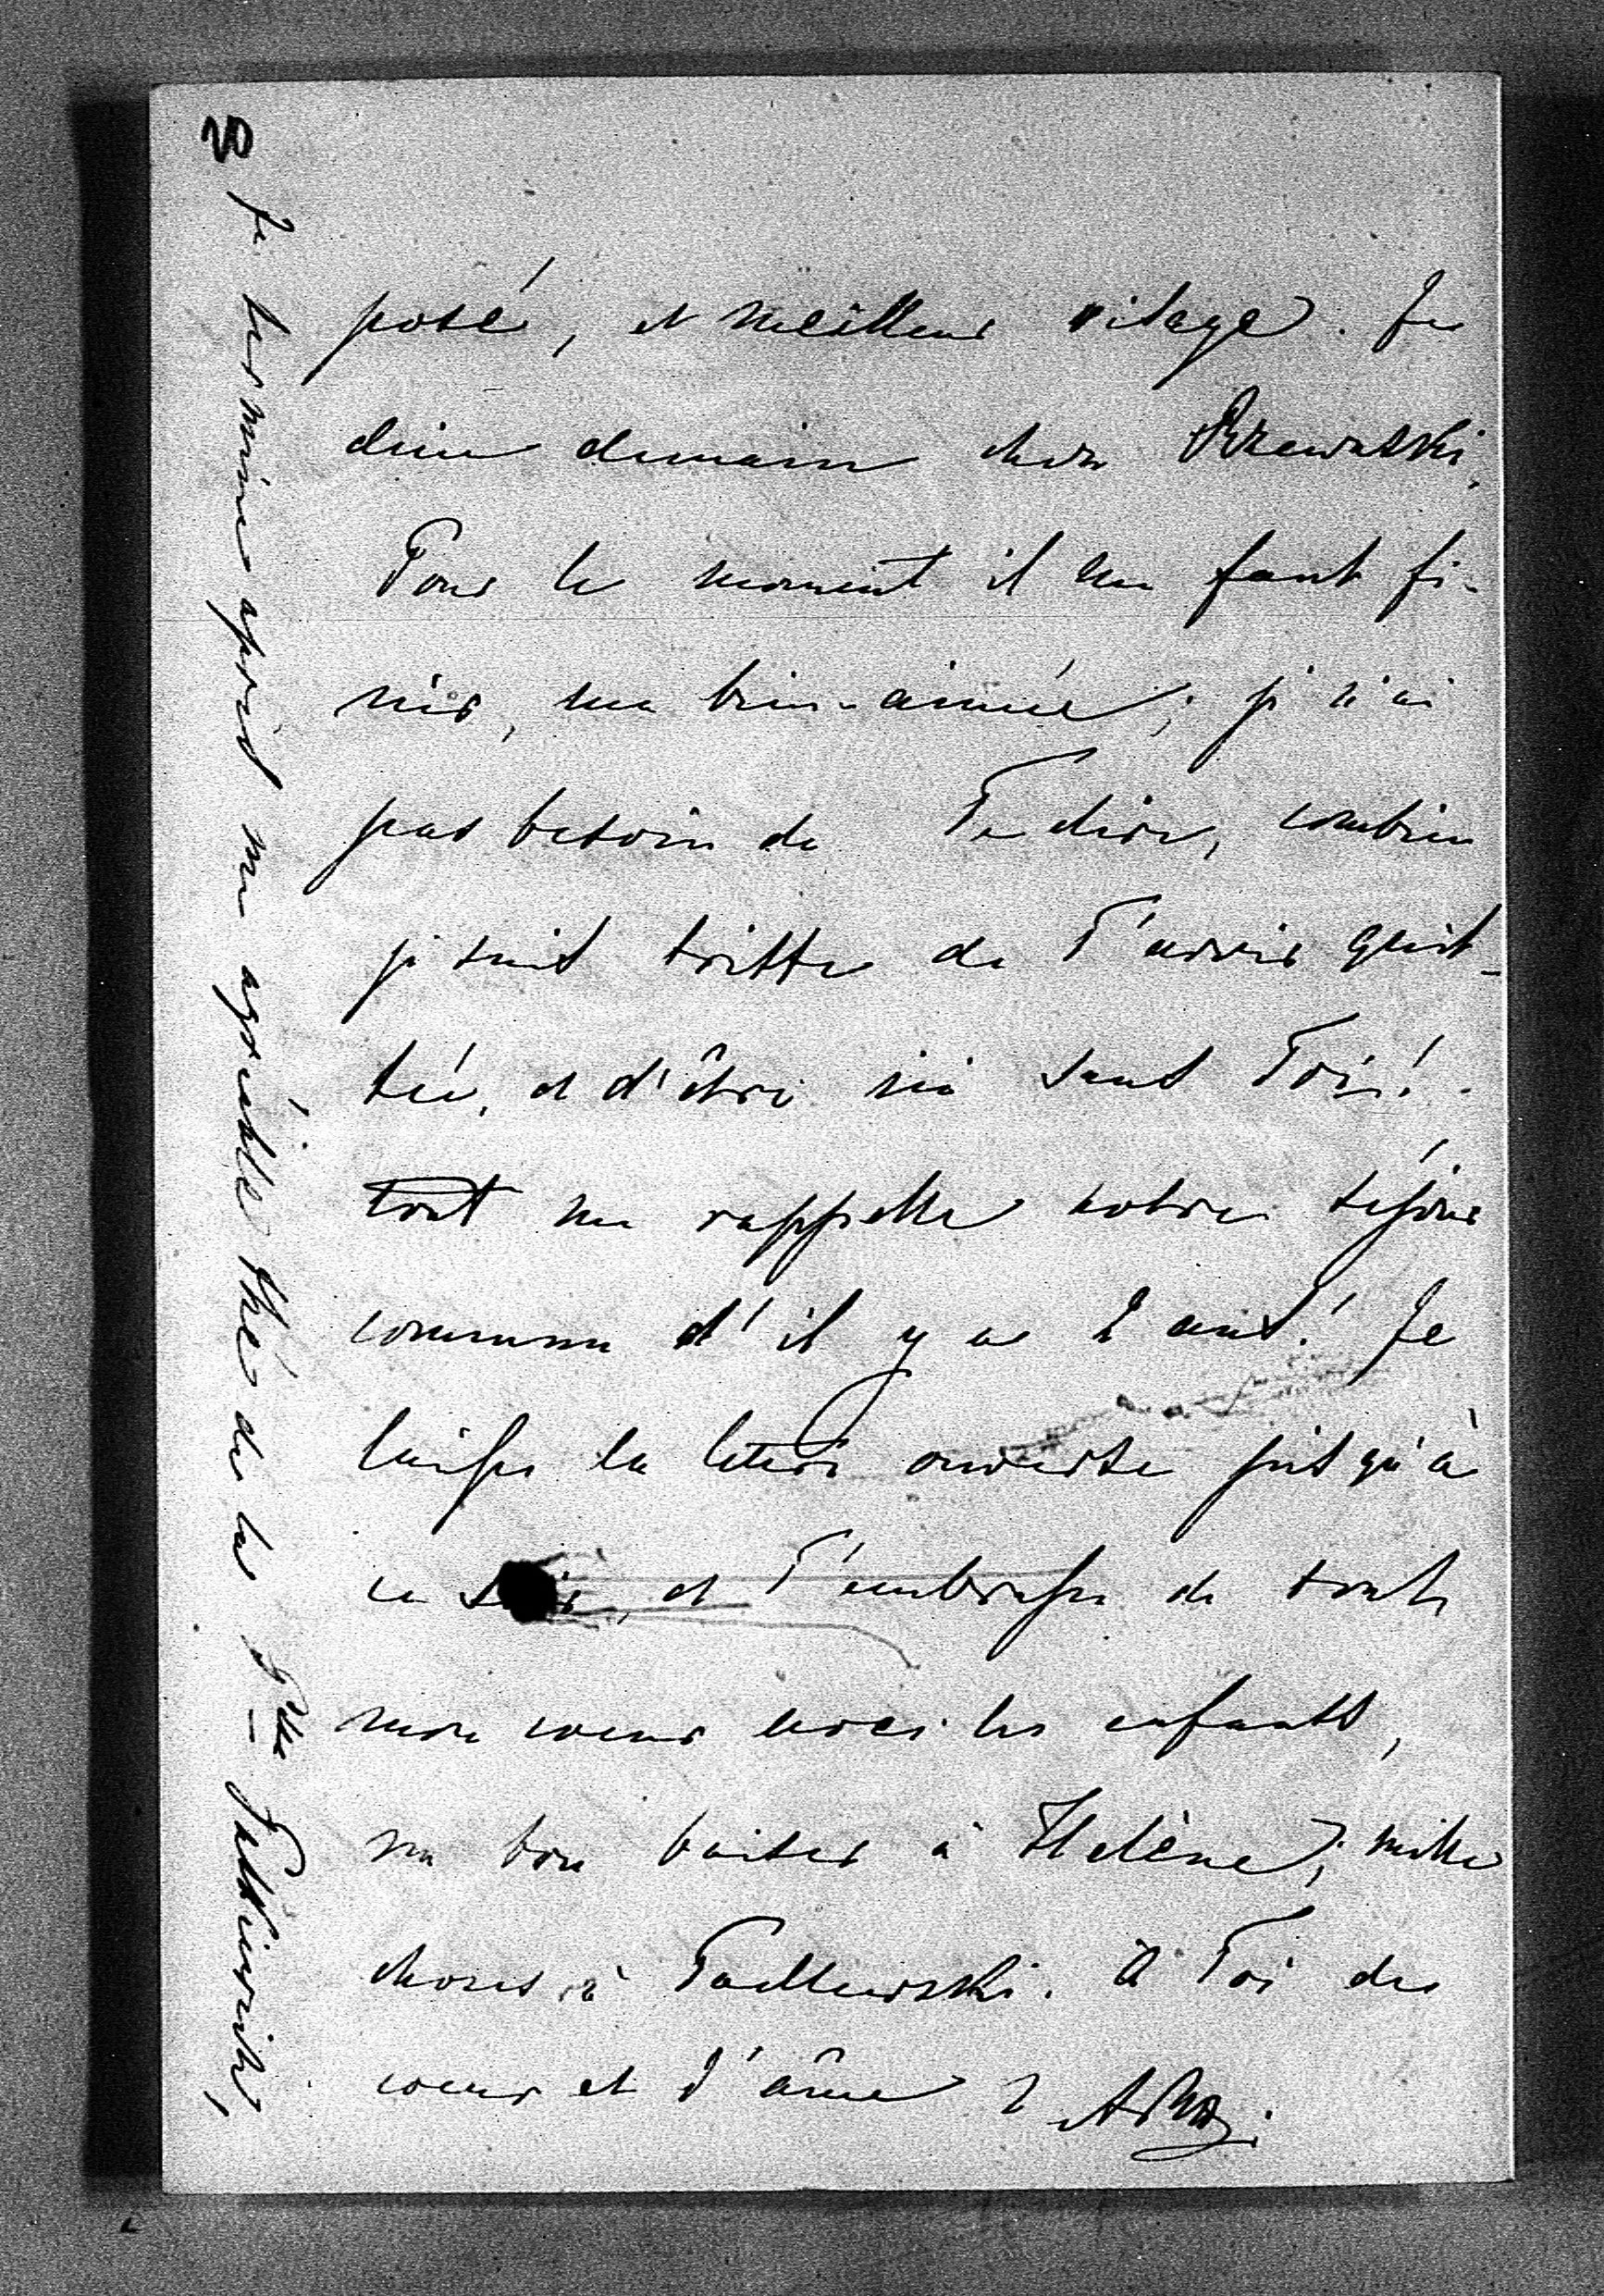 posé, et meilleur visage. Je
dine demain chez Rzewuski.
Pour le moment il me faut fi-
nir, ma bien-aimée; je n'ai
pas besoin de Te dire, combien
je suis triste de T'avoir quit-
tée, et d'être ici sans Toi!
tout me rappelle notre séjour
commun d'il y a 2 ans! Je
laisse la lettre ouverte jusqu'à
ce soir, et T'embrasse de tout
mon coeur avec les enfants,
un bon baiser à Helène; mille
choses à Padlewski. à Toi de
coeur et d'âme
Je termine après un agréable thé de la